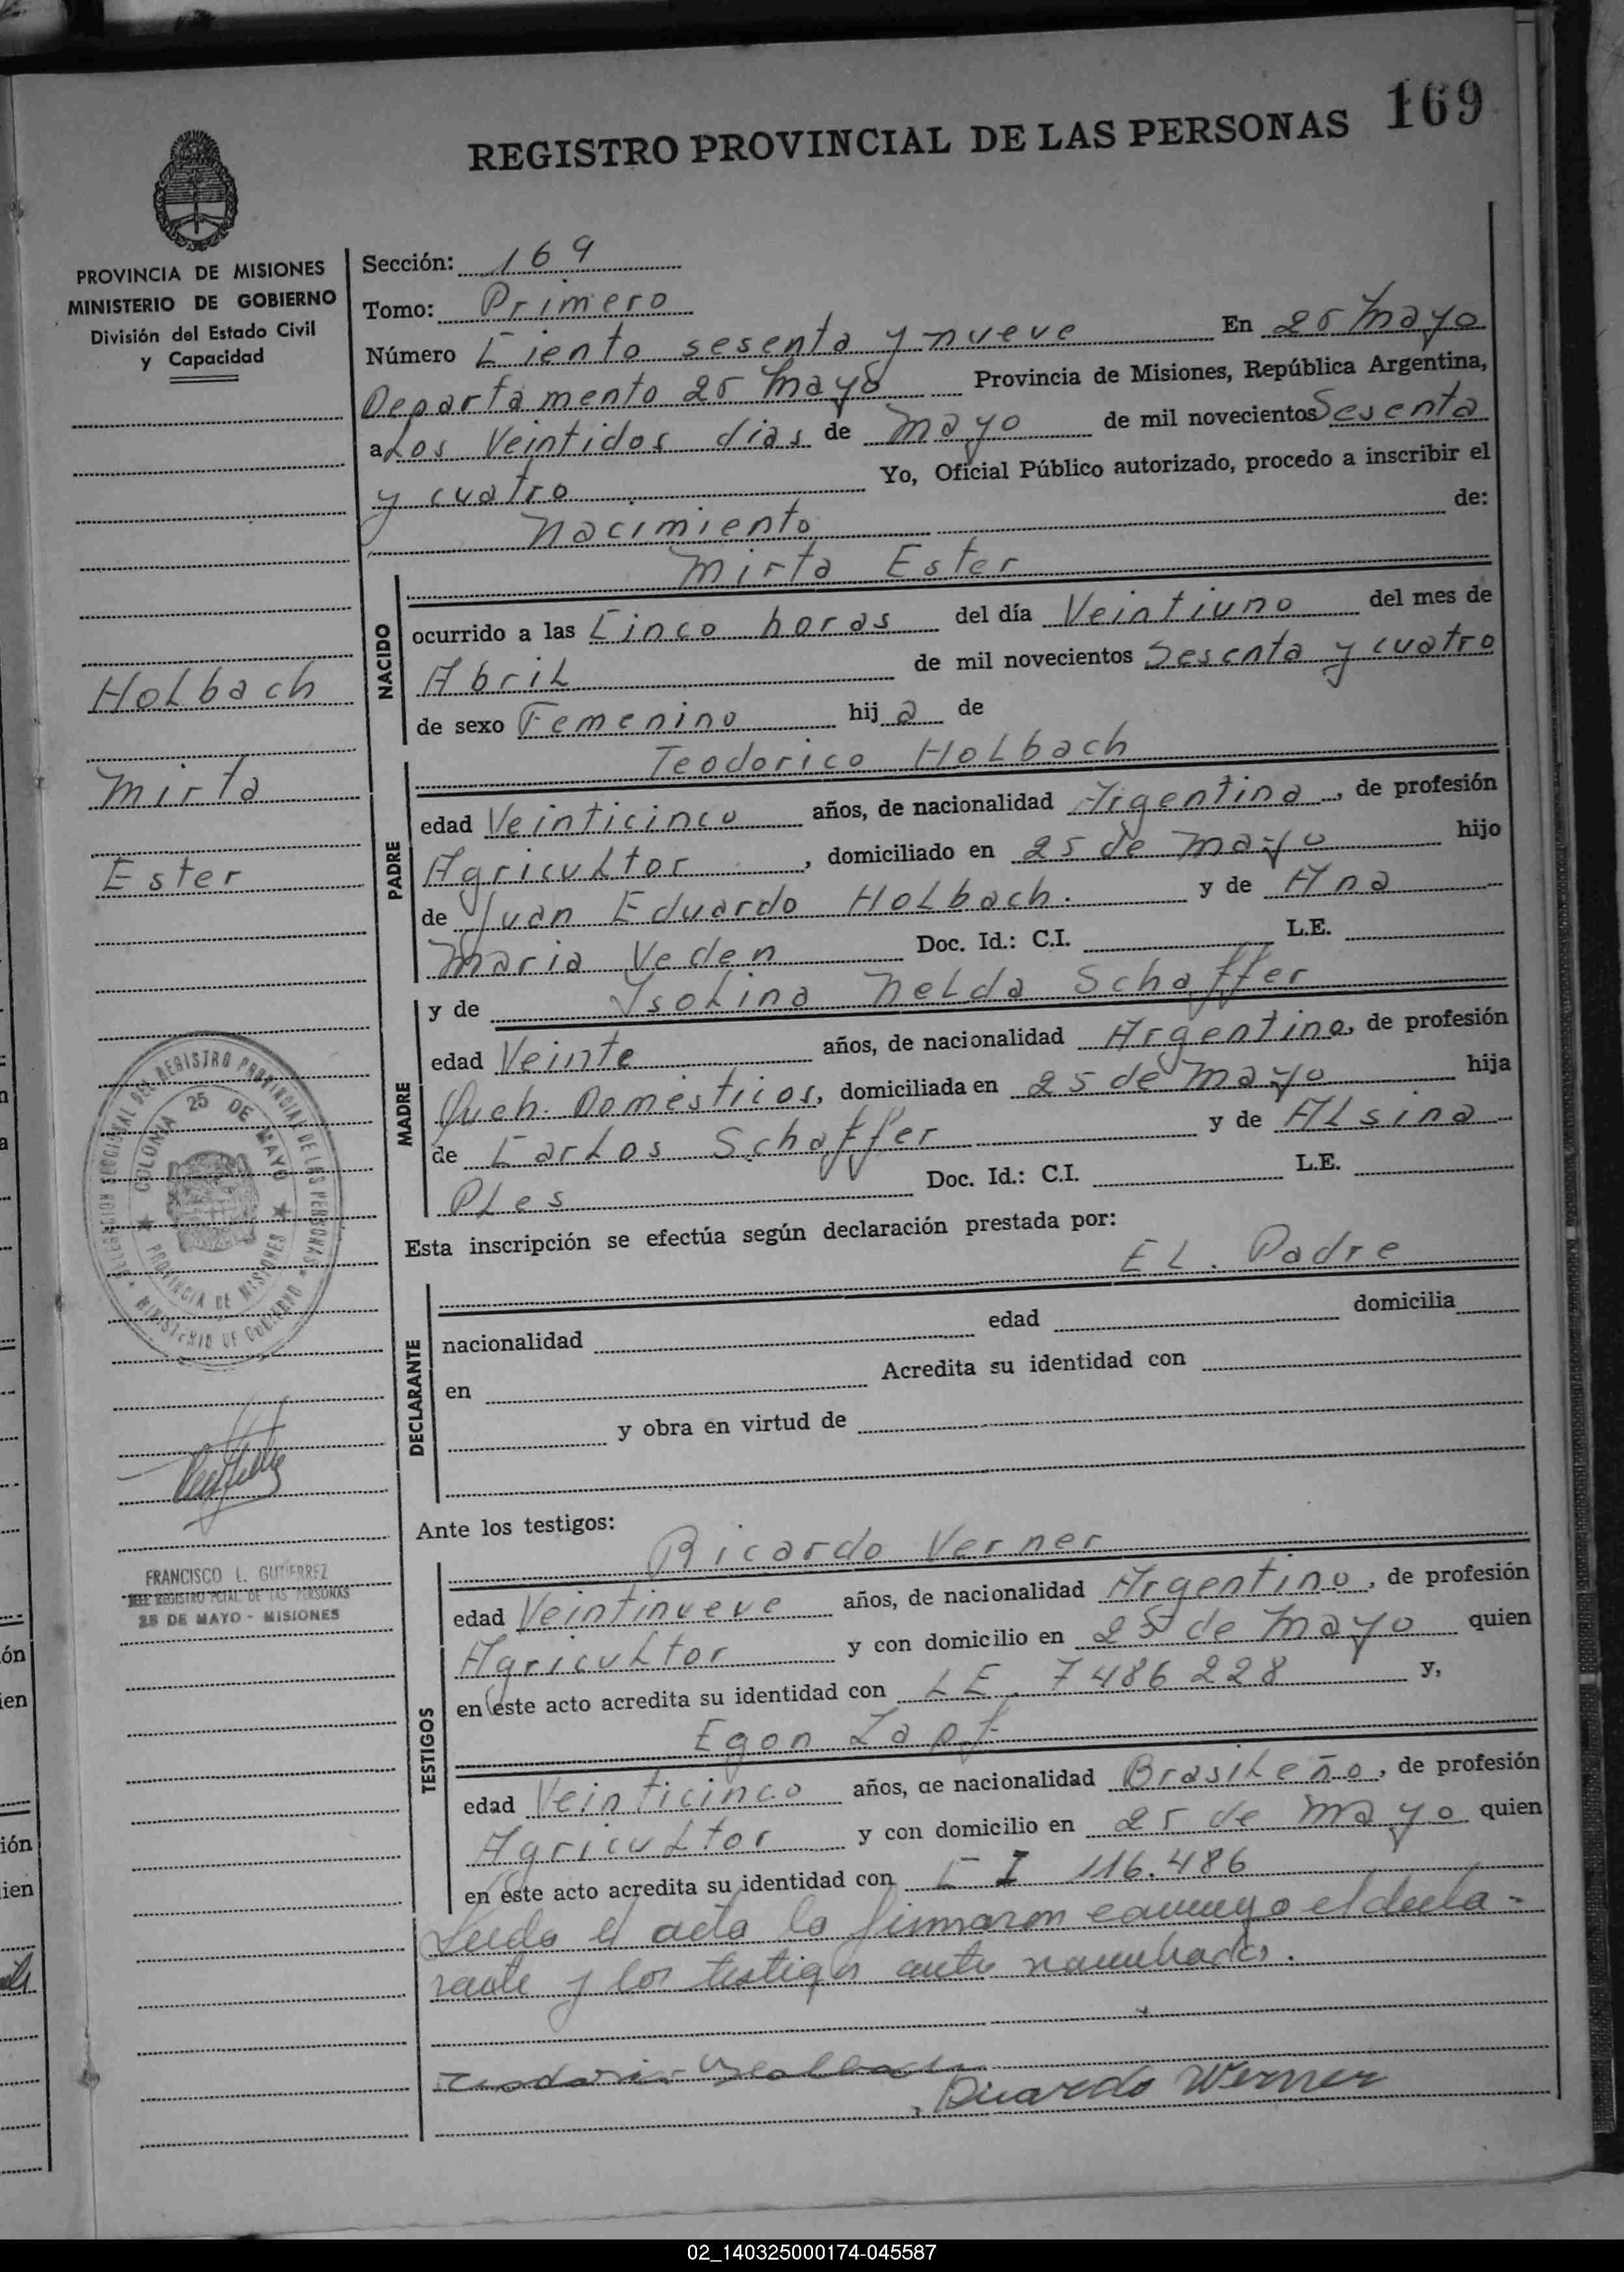 169
REGISTRO PROVINCIAL DE LAS PERSONAS
PROVINCIA DE MISIONES
MINISTERIO DE GOBIERNO
División del Estado Civil
y Capacidad
Sección: 169
Tomo: Primero
Número Ciento sesenta y nueve En 25 Mayo
Departamento 25 Mayo Provincia de Misiones, República Argentina,
a Los Veintidos dias de Mayo de mil novecientos Sesenta
y cuatro Yo, Oficial Público autorizado, procedo a inscribir el
Nacimiento de:
Mirta Ester
NACIDO
ocurrido a las Cinco horas del día Veintiuno del mes de
Abril de mil novecientos Sesenta y cuatro
de sexo Femenino hij a de
Holbach
Mirta
Ester
Teodorico Holbach
PADRE
edad Veinticinco años, de nacionalidad Argentina, de profesión
Agricultor, domiciliado en 25 de Mayo hijo
de Juan Eduardo Holbach. y de Ana
Maria Veden Doc. Id.: C.I. L.E.
y de Ysolina Nelda Schaffer
MADRE
edad Veinte años, de nacionalidad Argentina, de profesión
Queh. Domesticos, domiciliada en 25 de Mayo hija
de Carlos Schaffer y de Alsina
Ples Doc. Id.: C.I. L.E.
Esta inscripción se efectúa según declaración prestada por:
El. Padre
DECLARANTE
nacionalidad edad domicilia
en Acredita su identidad con
y obra en virtud de
DELEGACION SECCIONAL DEL REGISTRO PROVINCIAL DE LAS PERSONAS
MINISTERIO DE GOBIERNO
COLONIA 25 DE MAYO
PROVINCIA DE MISIONES
FRANCISCO L. GUTIERREZ
JEFE REGISTRO PCIAL. DE LAS PERSONAS
25 DE MAYO - MISIONES
Ante los testigos:
Ricardo Verner
TESTIGOS
edad Veintinueve años, de nacionalidad Argentino, de profesión
Agricultor y con domicilio en 25 de Mayo quien
en este acto acredita su identidad con LE. 7486228 y,
Egon Zapf
edad Veinticinco años, de nacionalidad Brasileño, de profesión
Agricultor y con domicilio en 25 de Mayo quien
en este acto acredita su identidad con C I 116.486
Leida el acta la firmaron conmigo el decla-
rante y los testigos antes nombrados.
Teodorico Holbach
Ricardo Werner
02_140325000174-045587